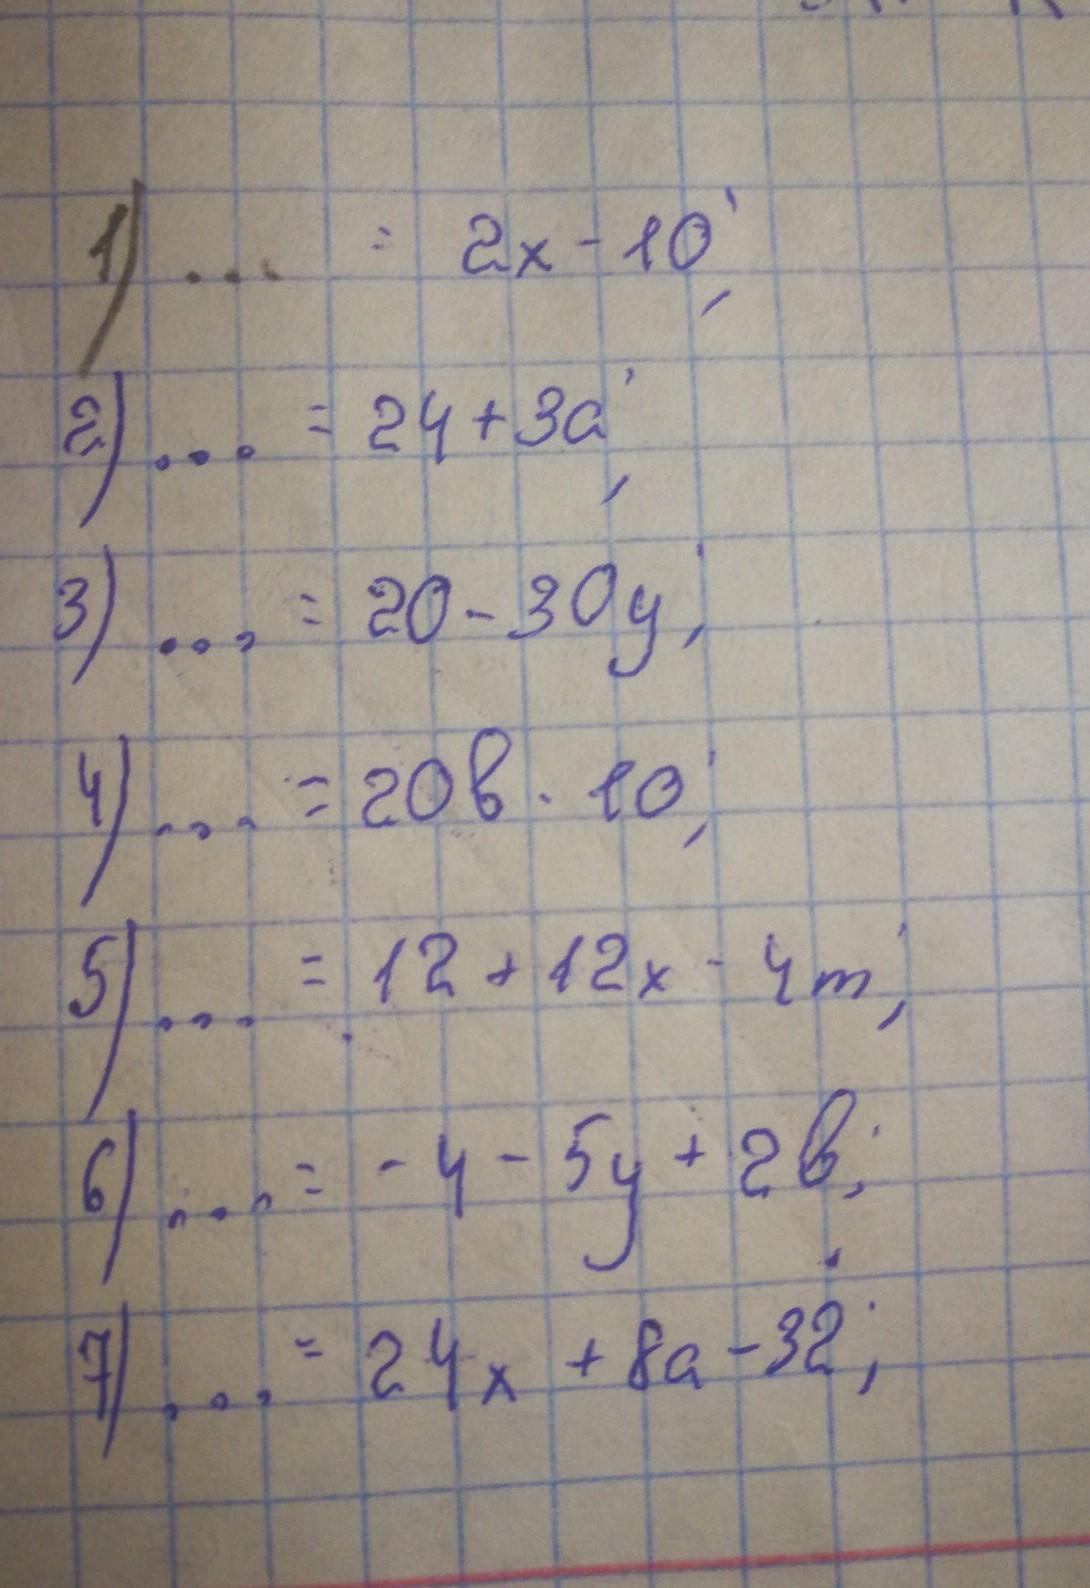 1) ... = 2x - 10;
2) ... = 24 + 3a;
3) ... = 20 - 30y;
4) ... = 20b · 10;
5) ... = 12 + 12x - 4m;
6) ... = -4 - 5y + 2b;
7) ... = 24x + 8a - 32;